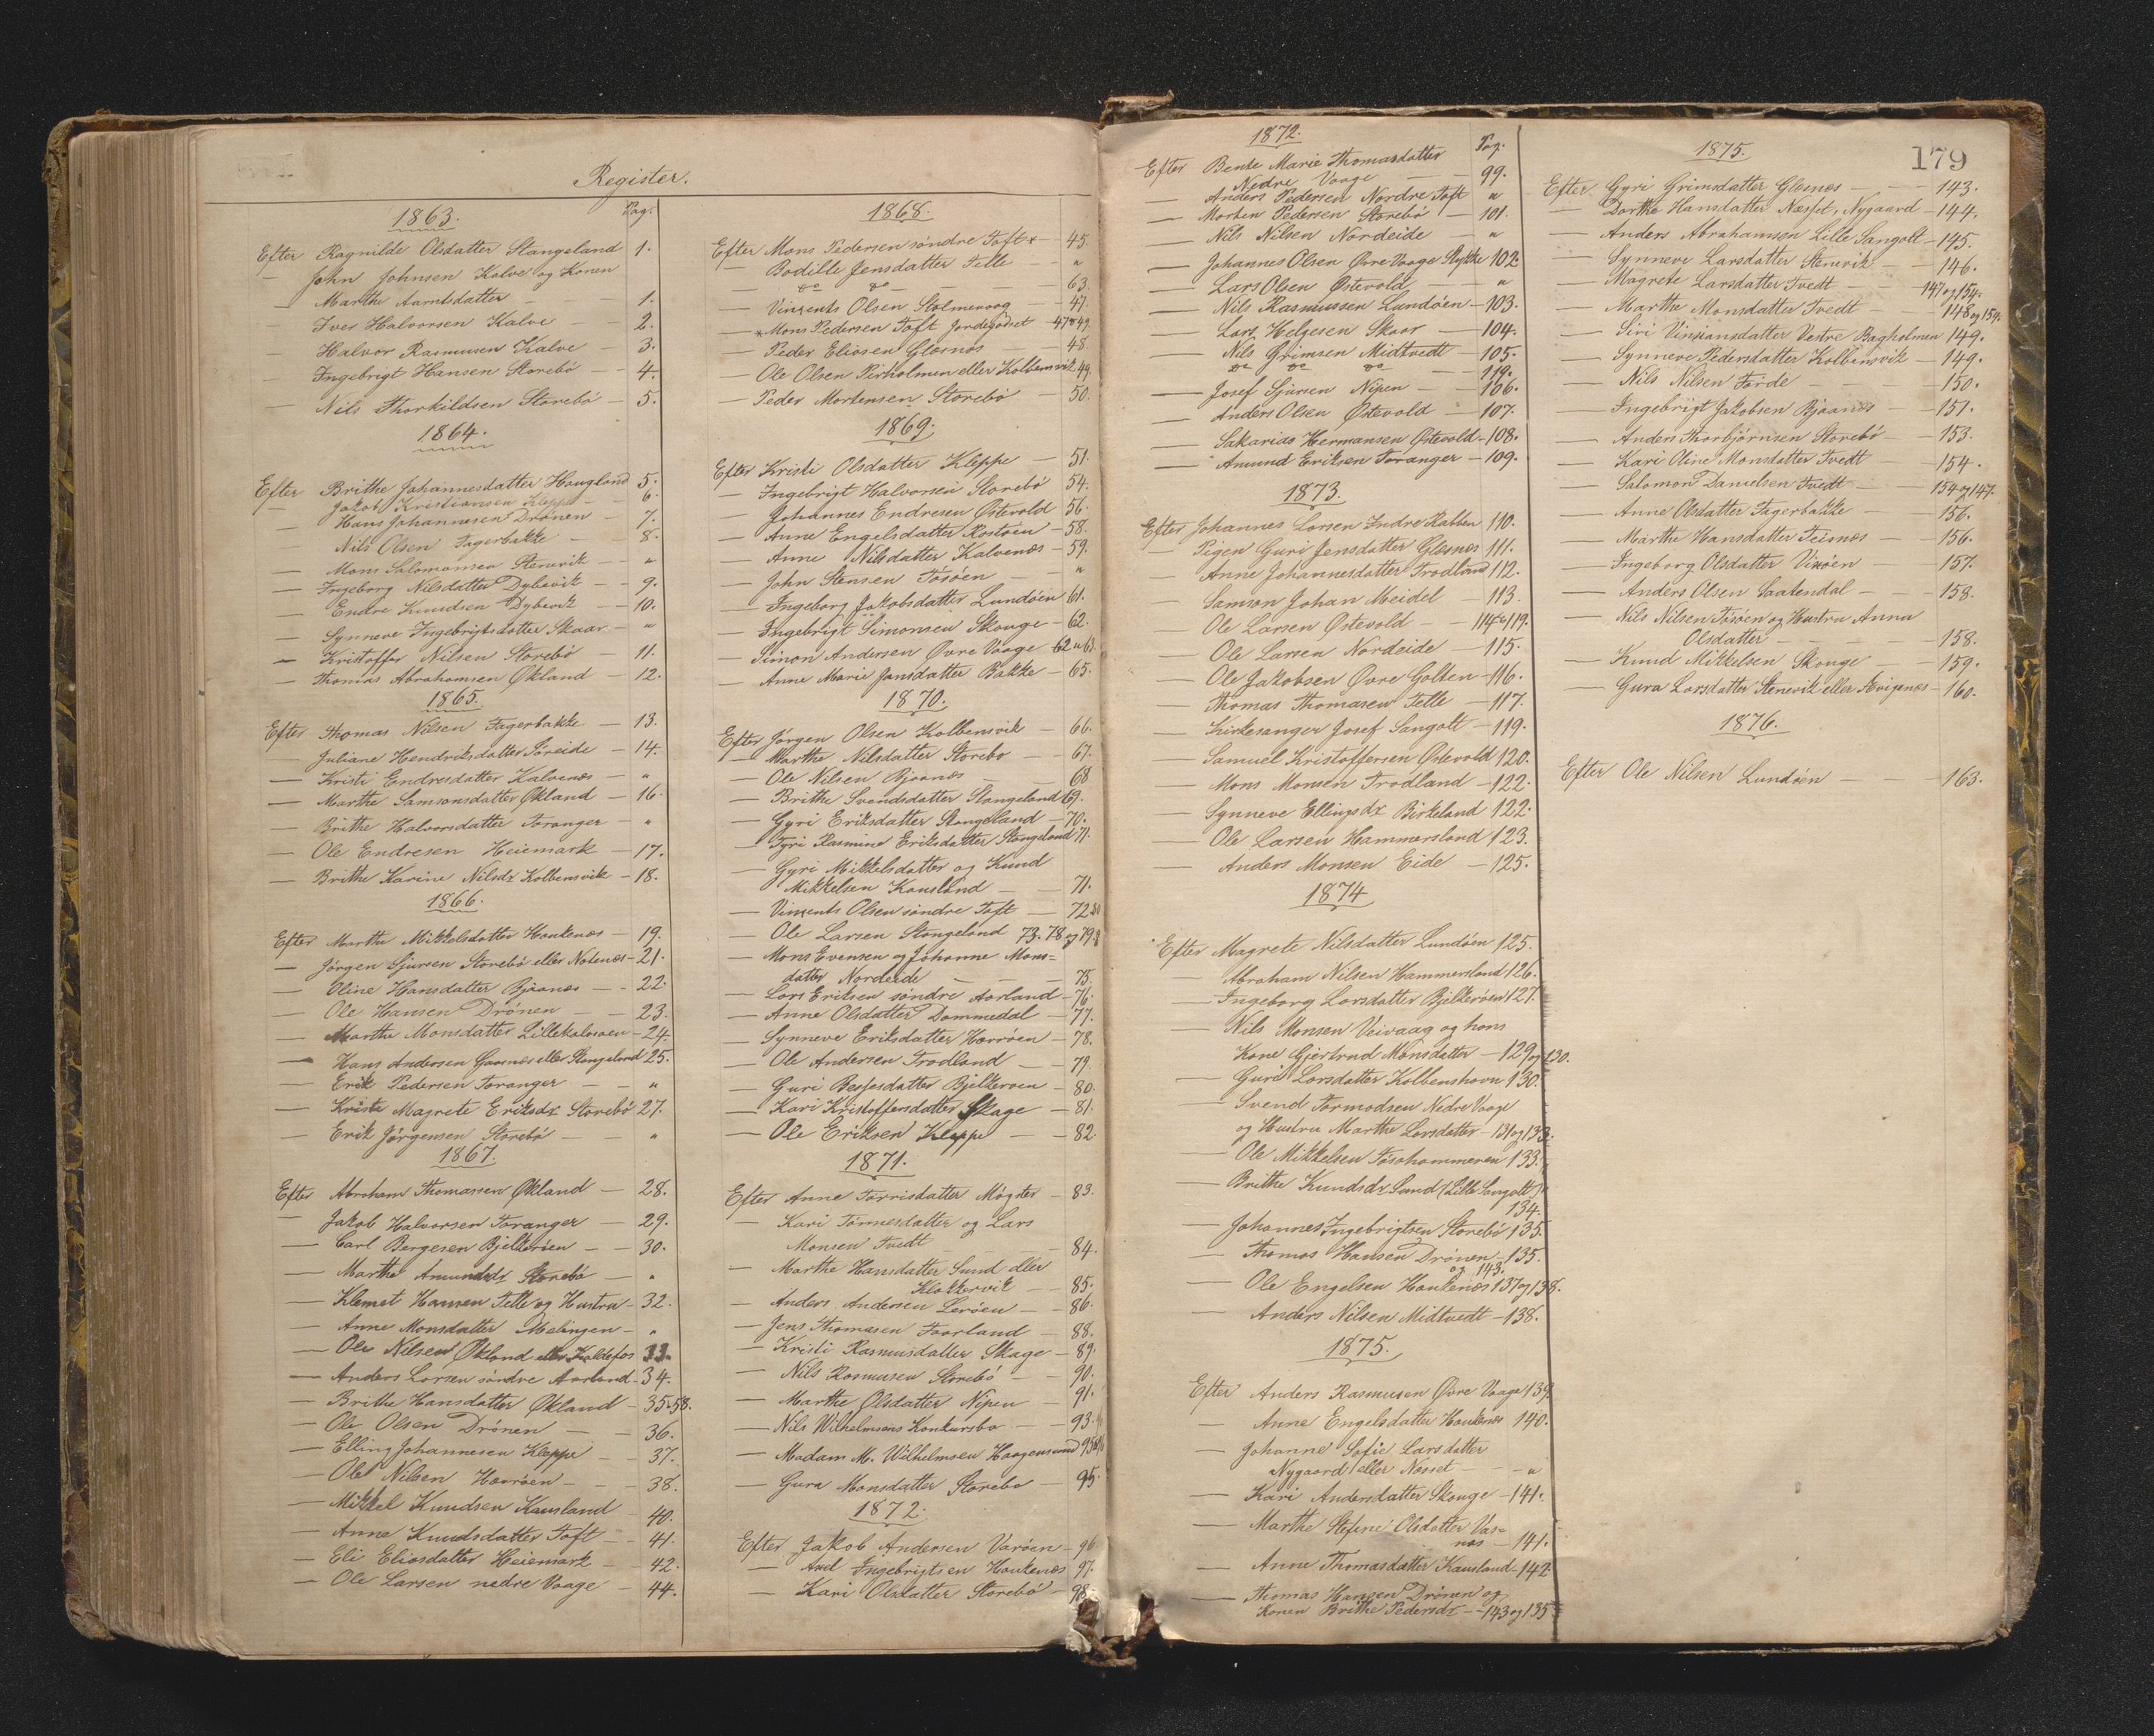 Register.
1863. Pag.
Efter Ragnilde Olsdatter Stangeland 1.
— John Johnsen Kalve og Konen
— Marthe Aarntsdatter — 1.
— Iver Halvorsen Kalve — 2.
— Halvor Rasmusen Kalve — 3.
— Ingebrigt Hansen Storebö — 4.
— Nils Thorkildsen Storebö — 5.
1864.
Efter Brithe Johannesdatter Hougland 5.
— Jakob Kristiansen Kleppe — 6.
— Hans Johannesen Drönen — 7.
Nils Olsen Fagerbakke — 8.
— Mons Salomonsen Stenevik — "
— Ingeborg Nilsdatter Dybevik — 9.
— Endre Knudsen Dybevik — 10.
— Synneve Ingebrigtsdatter Skaar — "
— Kristoffer Nilsen Storebö — 11.
— Thomas Abrahamsen Økland — 12.
1865.
Efter Thomas Nilsen Fagerbakke — 13.
— Juliane Hendriksdatter Söreide — 14.
— Kristi Endresdatter Kalvenæs — "
— Marthe Samsonsdatter Økland — 16.
— Brithe Halvorsdatter Foranger — "
— Ole Endresen Heiemark — 17.
— Brithe Karine Nilsdr Kolbensvik — 18.
1866.
Efter Marthe Mikkelsdatter Houkenæs — 19.
— Jörgen Sjursen Storebö eller Notenæs — 21.
— Oline Hansdatter Bjaanæs — 22.
— Ole Hansen Drönen — 23.
— Marthe Monsdatter Lillekalsoen — 24.
— Hans Andersen Gaasnes eller Stangeland 25.
— Erik Pedersen Foranger — "
— Kristi Magrete Eriksdr Storebö 27.
— Erik Jörgensen Storebö — "
1867.
Efter Abraham Thomassen Økland — 28.
— Jakob Halvorsen Foranger — 29.
— Carl Bergesen Bjelkeröen — 30.
— Marthe Amundsdr Storebö — "
— Klemet Hansen Telle og Hustru — 32.
— Anne Monsdatter Melingen — "
— Ole Nilsen Økland eller Kaldefos 33.
— Anders Larsen söndre Aarland — 34.
— Brithe Hansdatter Økland — 35 58.
— Ole Olsen Drönen — 36.
— Elling Johannesen Kleppe — 37.
— Ole Nilsen Havröen — 38.
— Mikkel Knudsen Kausland — 40.
— Anne Knudsdatter Toft — 41.
— Eli Eliasdatter Heiemark — 42.
— Ole Larsen nedre Vaage — 44.
1868.
Efter Mons Pedersen söndre Toft × — 45
— Bodille Jensdatter Telle — "
— do do — 63.
— Vinzents Olsen Stolmevaag — 47.
— × Mons Pedersen Toft Jordegodset — 47 & 49
— Peder Eliasen Glesnæs — 48
— Ole Olsen Pirholmen eller Kolbensvik 49
— Peder Mortensen Storebö — 50.
1869.
Efter Kristi Olsdatter Kleppe — 51.
— Ingebrigt Halvorsen Storebö 54.
— Johannes Endresen Østevold 56.
— Anne Engelsdatter Rostöen — 58.
— Anne Nilsdatter Kalvenæs — 59.
— John Stensen Fösöen — "
— Ingeborg Jakobsdatter Lundöen 61.
— Ingebrigt Simonsen Skouge — 62.
— Simon Andersen Øvre Vaage 62 & 63.
— Anne Marie Jansdatter Bakke — 65.
1870.
Efter Jörgen Olsen Kolbensvik — 66.
— Marthe Nilsdatter Storebö — 67.
— Ole Nilsen Bjaanæs — 68
— Brithe Svendsdatter Stangeland 69.
— Gyri Eriksdatter Stangeland — 70.
— Gyri Rasmine Eriksdatter Stangeland 71.
— Gyri Mikkelsdatter og Knud
Mikkelsen Kausland — 71.
— Vinzents Olsen söndre Toft — 72
— Ole Larsen Stangeland 73. 78 og 79
— Mons Evensen og Johanne Mons=
datter Nordeide — 75.
— Lars Eriksen söndre Aarland — 76.
— Anne Olsdatter Dommedal — 77.
— Synneve Eriksdatter Havröen — 78.
— Ole Andersen Trodland — 79
— Guri Børgesdatter Bjelkeroen — 80.
— Kari Kristoffersdatter Skage — 81.
— Ole Eriksen Kleppe — 82
1871.
Efter Anne Torrisdatter Mögster — 83.
— Kari Tönnesdatter og Lars
Monsen Tvedt — 84.
— Marthe Hansdatter Sund eller
Klokkervik — 85.
— Anders Andersen Leröen — 86.
— Jens Thomasen Foorland — 88.
— Kristi Rasmusdatter Skage — 89.
— Nils Rasmusen Storebö — 90.
— Marthe Olsdatter Nipen — 91.
— Nils Wilhelmsens Konkursbo — 93.
— Madam M. Wilhelmsen Haagensund 95
— Gura Monsdatter Storebo — 95
1872.
Efter Jakob Andersen Varöen — 96
— Axel Ingebrigtsen Houkenæs 97.
— Kari Olsdatter Storebö — 98.
1872. Pag.
Efter Bente Marie Thomasdatter
Nedre Vaage — 99.
— Anders Pedersen Nordre Toft "
— Morten Pedersen Storebö — 101.
— Nils Nilsen Nordeide — "
— Johannes Olsen Øvre Vaage Stykke 102
— Lars Olsen Østevold — "
— Nils Rasmussen Lundöen — 103.
— Lars Helgesen Skaar — 104.
— Nils Grimsen Midtvedt — 105.
do do do — 119.
— Josef Sjursen Nipen — 106.
— Anders Olsen Østevold — 107.
— Sakarias Hermansen Østevold — 108.
— Amund Eriksen Foranger — 109.
1873.
Efter Johannes Larsen Indre Rabben 110.
— Pigen Guri Jensdatter Glesnæs 111.
— Anne Johannesdatter Trodland 112.
— Samson Johan Meidel — 113.
— Ole Larsen Østevold — 114 & 119.
— Ole Larsen Nordeide — 115.
— Ole Jakobsen Øvre Golten — 116.
— Thomas Thomasen Telle — 117.
— Kirkesanger Josef Sangolt — 119.
— Samuel Kristoffersen Østevold 120.
— Mons Monsen Trodland — 122.
— Synneve Ellingsdr Birkeland 122.
— Ole Larsen Hammersland 123.
— Anders Monsen Eide — 125.
1874
Efter Magrete Nilsdatter Lundöen 125.
— Abraham Nilsen Hammersland 126.
— Ingeborg Larsdatter Bjelkeröen 127.
— Nils Monsen Veivaag og hans
Kone Gjertrud Monsdatter — 129 og 130.
— Guri Larsdatter Kolbenshavn 130.
— Svend Tormodsen Nedre Vaage
og Hustru Marthe Larsdatter — 131 og 133.
— Ole Mikkelsen Fösohammeren 133.
— Brithe Knudsdr Sund (Lille Sangolt)
134.
— Johannes Ingebrigtsen Storebö 135.
— Thomas Hansen Drönen — 135.
og 143.
— Ole Engelsen Houkenæs 137 og 138.
— Anders Nilsen Midtvedt — 138.
1875.
Efter Anders Rasmusen Øvre Vaage 139.
— Anne Engelsdatter Houkenæs 140.
— Johanne Sofie Larsdatter
Nygaard eller Nesset — "
— Kari Andersdatter Skouge — 141.
— Marthe Stefine Olsdatter Vas=
næs — 141.
— Anne Thomasdatter Kausland — 142
— Thomas Hansen Drönen og
Konen Brithe Pedersdr — 143 og 135
1875. 179
Efter Gyri Grimsdatter Glesnæs — 143.
— Dorthe Hansdatter Næsset, Nygaard — 144.
— Anders Abrahamsen Lille Sangolt — 145.
— Synneve Larsdatter Stenevik — 146.
— Magrete Larsdatter Tvedt — 147 og 154.
— Marthe Monsdatter Tvedt — 148 og 159.
— Siri Vinsiansdatter Vestre Bagholmen 149.
— Synneve Pedersdatter Kolbensvik — 149.
— Nils Nilsen Förde — 150.
— Ingebrigt Jakobsen Bjaanæs — 151.
— Anders Thorbjörnsen Storebö — 153.
— Kari Oline Monsdatter Tvedt — 154.
— Salomon Danielsen Tvedt — 154 og 147.
— Anne Olsdatter Fagerbakke — 156.
— Marthe Hansdatter Teisnæs — 156.
— Ingeborg Olsdatter Vixöen — 157.
— Anders Olsen Saatendal — 158.
— Nils Nilsen Fösöen og Hustru Anna
Olsdatter — 158.
— Knud Mikkelsen Skouge — 159.
— Gura Larsdatter Stenevik eller Kvigenæs — 160.
1876.
Efter Ole Nilsen Lundöen — 163.